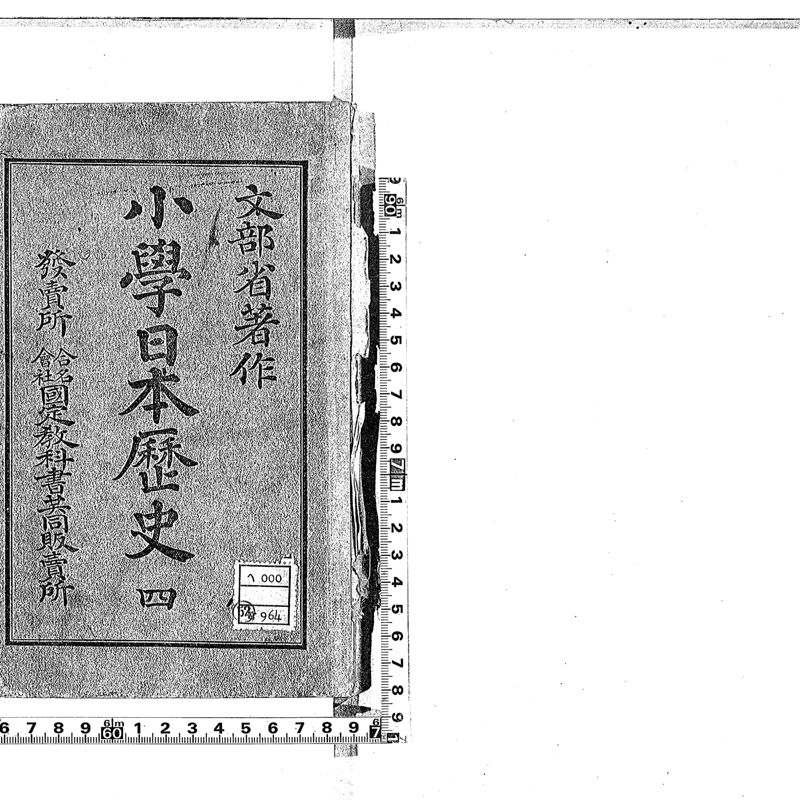 文部省著作
小學日本歷史 四
發賣所 合名會社國定教科書共同販賣所
ヘ 000
964
9 6m 90 1 2 3 4 5 6 7 8 9 7m 1 2 3 4 5 6 7 8 9
6 7 8 9 6m 60 1 2 3 4 5 6 7 8 9 6 7